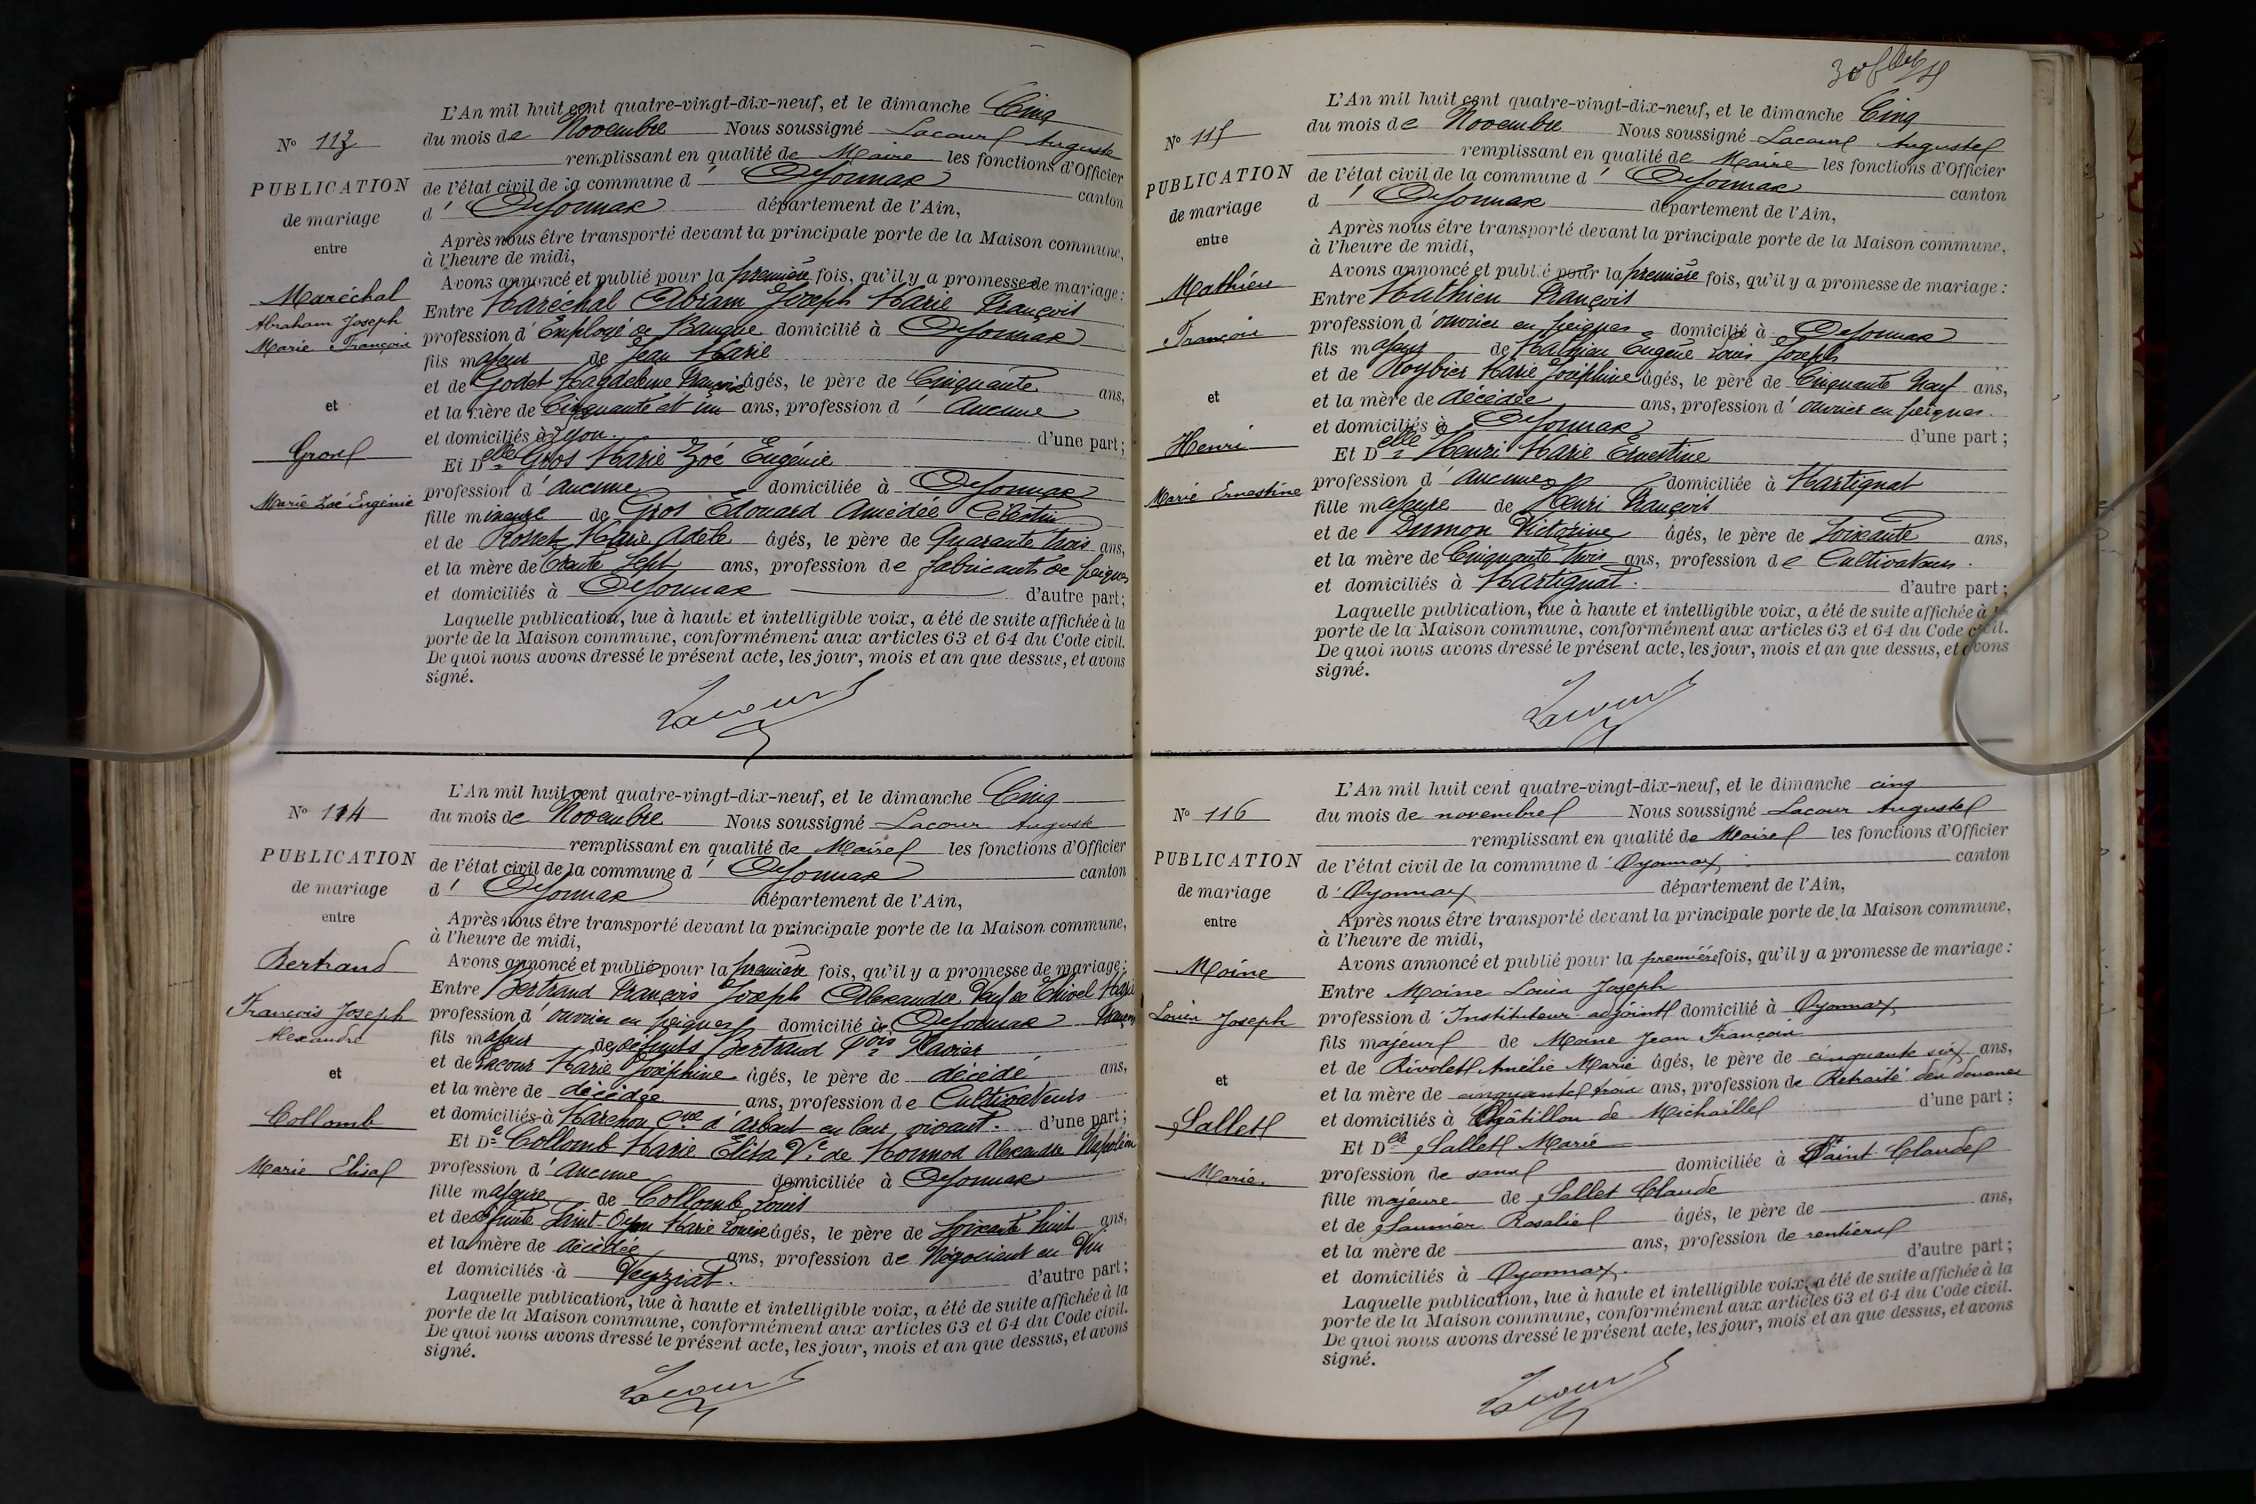 L'An mil huit cent quatre-vingt-dix-neuf, et le dimanche Cinq
N° 113
du mois de Novembre Nous soussigné Lacour Auguste
remplissant en qualité de Maire les fonctions d'Officier
PUBLICATION
de l'état civil de la commune d' Oyonnax canton
de mariage
d' Oyonnax département de l'Ain,
entre
Après nous être transporté devant la principale porte de la Maison commune,
à l'heure de midi,
Avons annoncé et publié pour la première fois, qu'il y a promesse de mariage :
Maréchal
Abraham Joseph
Marie François
Entre Maréchal Abram Joseph Marie François
profession d' Employé de Banque domicilié à Oyonnax
fils majeur de Jean Marie
et de Godet Magdeleine âgés, le père de Cinquante ans,
et
et la mère de Cinquante et un ans, profession d' Aucune
et domiciliés à Lyon. d'une part ;
Gros
Et Delle Gros Marie Zoé Eugénie
Marie Zoé Eugénie
profession d' aucune domiciliée à Oyonnax
fille mineure de Gros Edouard Amédée Célestin
et de Rosset Marie Adèle âgés, le père de Quarante trois ans,
et la mère de Trente Sept ans, profession de fabricants de peignes
et domiciliés à Oyonnax d'autre part ;
Laquelle publication, lue à haute et intelligible voix, a été de suite affichée à la
porte de la Maison commune, conformément aux articles 63 et 64 du Code civil.
De quoi nous avons dressé le présent acte, les jour, mois et an que dessus, et avons
signé.
Lacour
L'An mil huit cent quatre-vingt-dix-neuf, et le dimanche Cinq
N° 114
du mois de Novembre Nous soussigné Lacour Auguste
remplissant en qualité de Maire les fonctions d'Officier
PUBLICATION
de l'état civil de la commune d' Oyonnax canton
de mariage
d' Oyonnax département de l'Ain,
entre
Après nous être transporté devant la principale porte de la Maison commune,
à l'heure de midi,
Bertrand
Avons annoncé et publié pour la première fois, qu'il y a promesse de mariage :
Entre Bertrand François Joseph Alexandre Veuf de
François Joseph
Alexandre
profession d' ouvrier en peignes domicilié à Oyonnax
fils majeur de défunts Bertrand Fois Xavier
et
et de Lacour Marie Joséphine âgés, le père de décédé ans,
et la mère de décédée ans, profession de Cultivateurs
Collomb
et domiciliés à Marchon Cne d'Arbent en leur vivant. d'une part ;
Et De Collomb Marie Elisa Ve de Monnod Alexandre Napoléon
Marie Elisa
profession d' aucune domiciliée à Oyonnax
fille majeure de Collomb Louis
et de défunte Saint-Oyen Marie Louise âgés, le père de Soixante huit ans,
et la mère de décédée ans, profession de Négociant en Vin
et domiciliés à Veyziat. d'autre part ;
Laquelle publication, lue à haute et intelligible voix, a été de suite affichée à la
porte de la Maison commune, conformément aux articles 63 et 64 du Code civil.
De quoi nous avons dressé le présent acte, les jour, mois et an que dessus, et avons
signé.
Lacour
L'An mil huit cent quatre-vingt-dix-neuf, et le dimanche Cinq
N° 115
du mois de Novembre Nous soussigné Lacour Auguste
remplissant en qualité de Maire les fonctions d'Officier
PUBLICATION
de l'état civil de la commune d' Oyonnax canton
de mariage
d' Oyonnax département de l'Ain,
entre
Après nous être transporté devant la principale porte de la Maison commune,
à l'heure de midi,
Avons annoncé et publié pour la première fois, qu'il y a promesse de mariage :
Mathieu
Entre Mathieu François
François
profession d' ouvrier en peignes domicilié à Oyonnax
fils majeur de Mathieu Eugène Louis Joseph
et de Roybier Marie Joséphine âgés, le père de Cinquante Neuf ans,
et
et la mère de décédée ans, profession d' ouvrier en peignes.
et domiciliés à Oyonnax d'une part ;
Henri
Et Delle Henri Marie Ernestine
Marie Ernestine
profession d' aucune domiciliée à Martignat
fille majeure de Henri François
et de Dumon Victorine âgés, le père de Soixante ans,
et la mère de Cinquante trois ans, profession de Cultivateurs.
et domiciliés à Martignat. d'autre part ;
Laquelle publication, lue à haute et intelligible voix, a été de suite affichée à la
porte de la Maison commune, conformément aux articles 63 et 64 du Code civil.
De quoi nous avons dressé le présent acte, les jour, mois et an que dessus, et avons
signé.
Lacour
L'An mil huit cent quatre-vingt-dix-neuf, et le dimanche cinq
N° 116
du mois de novembre Nous soussigné Lacour Auguste
remplissant en qualité de Maire les fonctions d'Officier
PUBLICATION
de l'état civil de la commune d' Oyonnax canton
de mariage
d' Oyonnax département de l'Ain,
entre
Après nous être transporté devant la principale porte de la Maison commune,
à l'heure de midi,
Moine
Avons annoncé et publié pour la première fois, qu'il y a promesse de mariage :
Entre Moine Louis Joseph
Louis Joseph
profession d' Instituteur adjoint domicilié à Oyonnax
fils majeur de Moine Jean François
et de Rivolet Amélie Marie âgés, le père de cinquante six ans,
et
et la mère de cinquante trois ans, profession de Retraité des douanes
et domiciliés à Châtillon de Michaille d'une part ;
Sallet
Et Delle Sallet Marie
Marie.
profession de sans domiciliée à Saint Claude
fille majeure de Sallet Claude
et de Saunier Rosalie âgés, le père de ans,
et la mère de ans, profession de rentiers
et domiciliés à Oyonnax. d'autre part ;
Laquelle publication, lue à haute et intelligible voix, a été de suite affichée à la
porte de la Maison commune, conformément aux articles 63 et 64 du Code civil.
De quoi nous avons dressé le présent acte, les jour, mois et an que dessus, et avons
signé.
Lacour